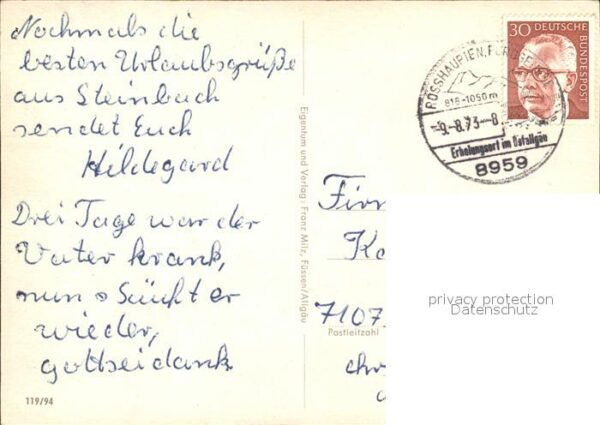 Nochmals die
besten Urlaubsgrüße
aus Steinbach
sendet Euch
Hildegard
Drei Tage war der
Vater krank,
nun
er
wieder,
gottseidank.
119/94
Eigentum und Verlag: Franz Milz, Füssen/Allgäu
30 DEUTSCHE BUNDESPOST
ROSSHAUPTEN, FORGGENSEE
816-1050m
-9.-8.73-8
Erholungsort im Ostallgäu
8959
Firm
7107
Postleitzahl
privacy protection
Datenschutz